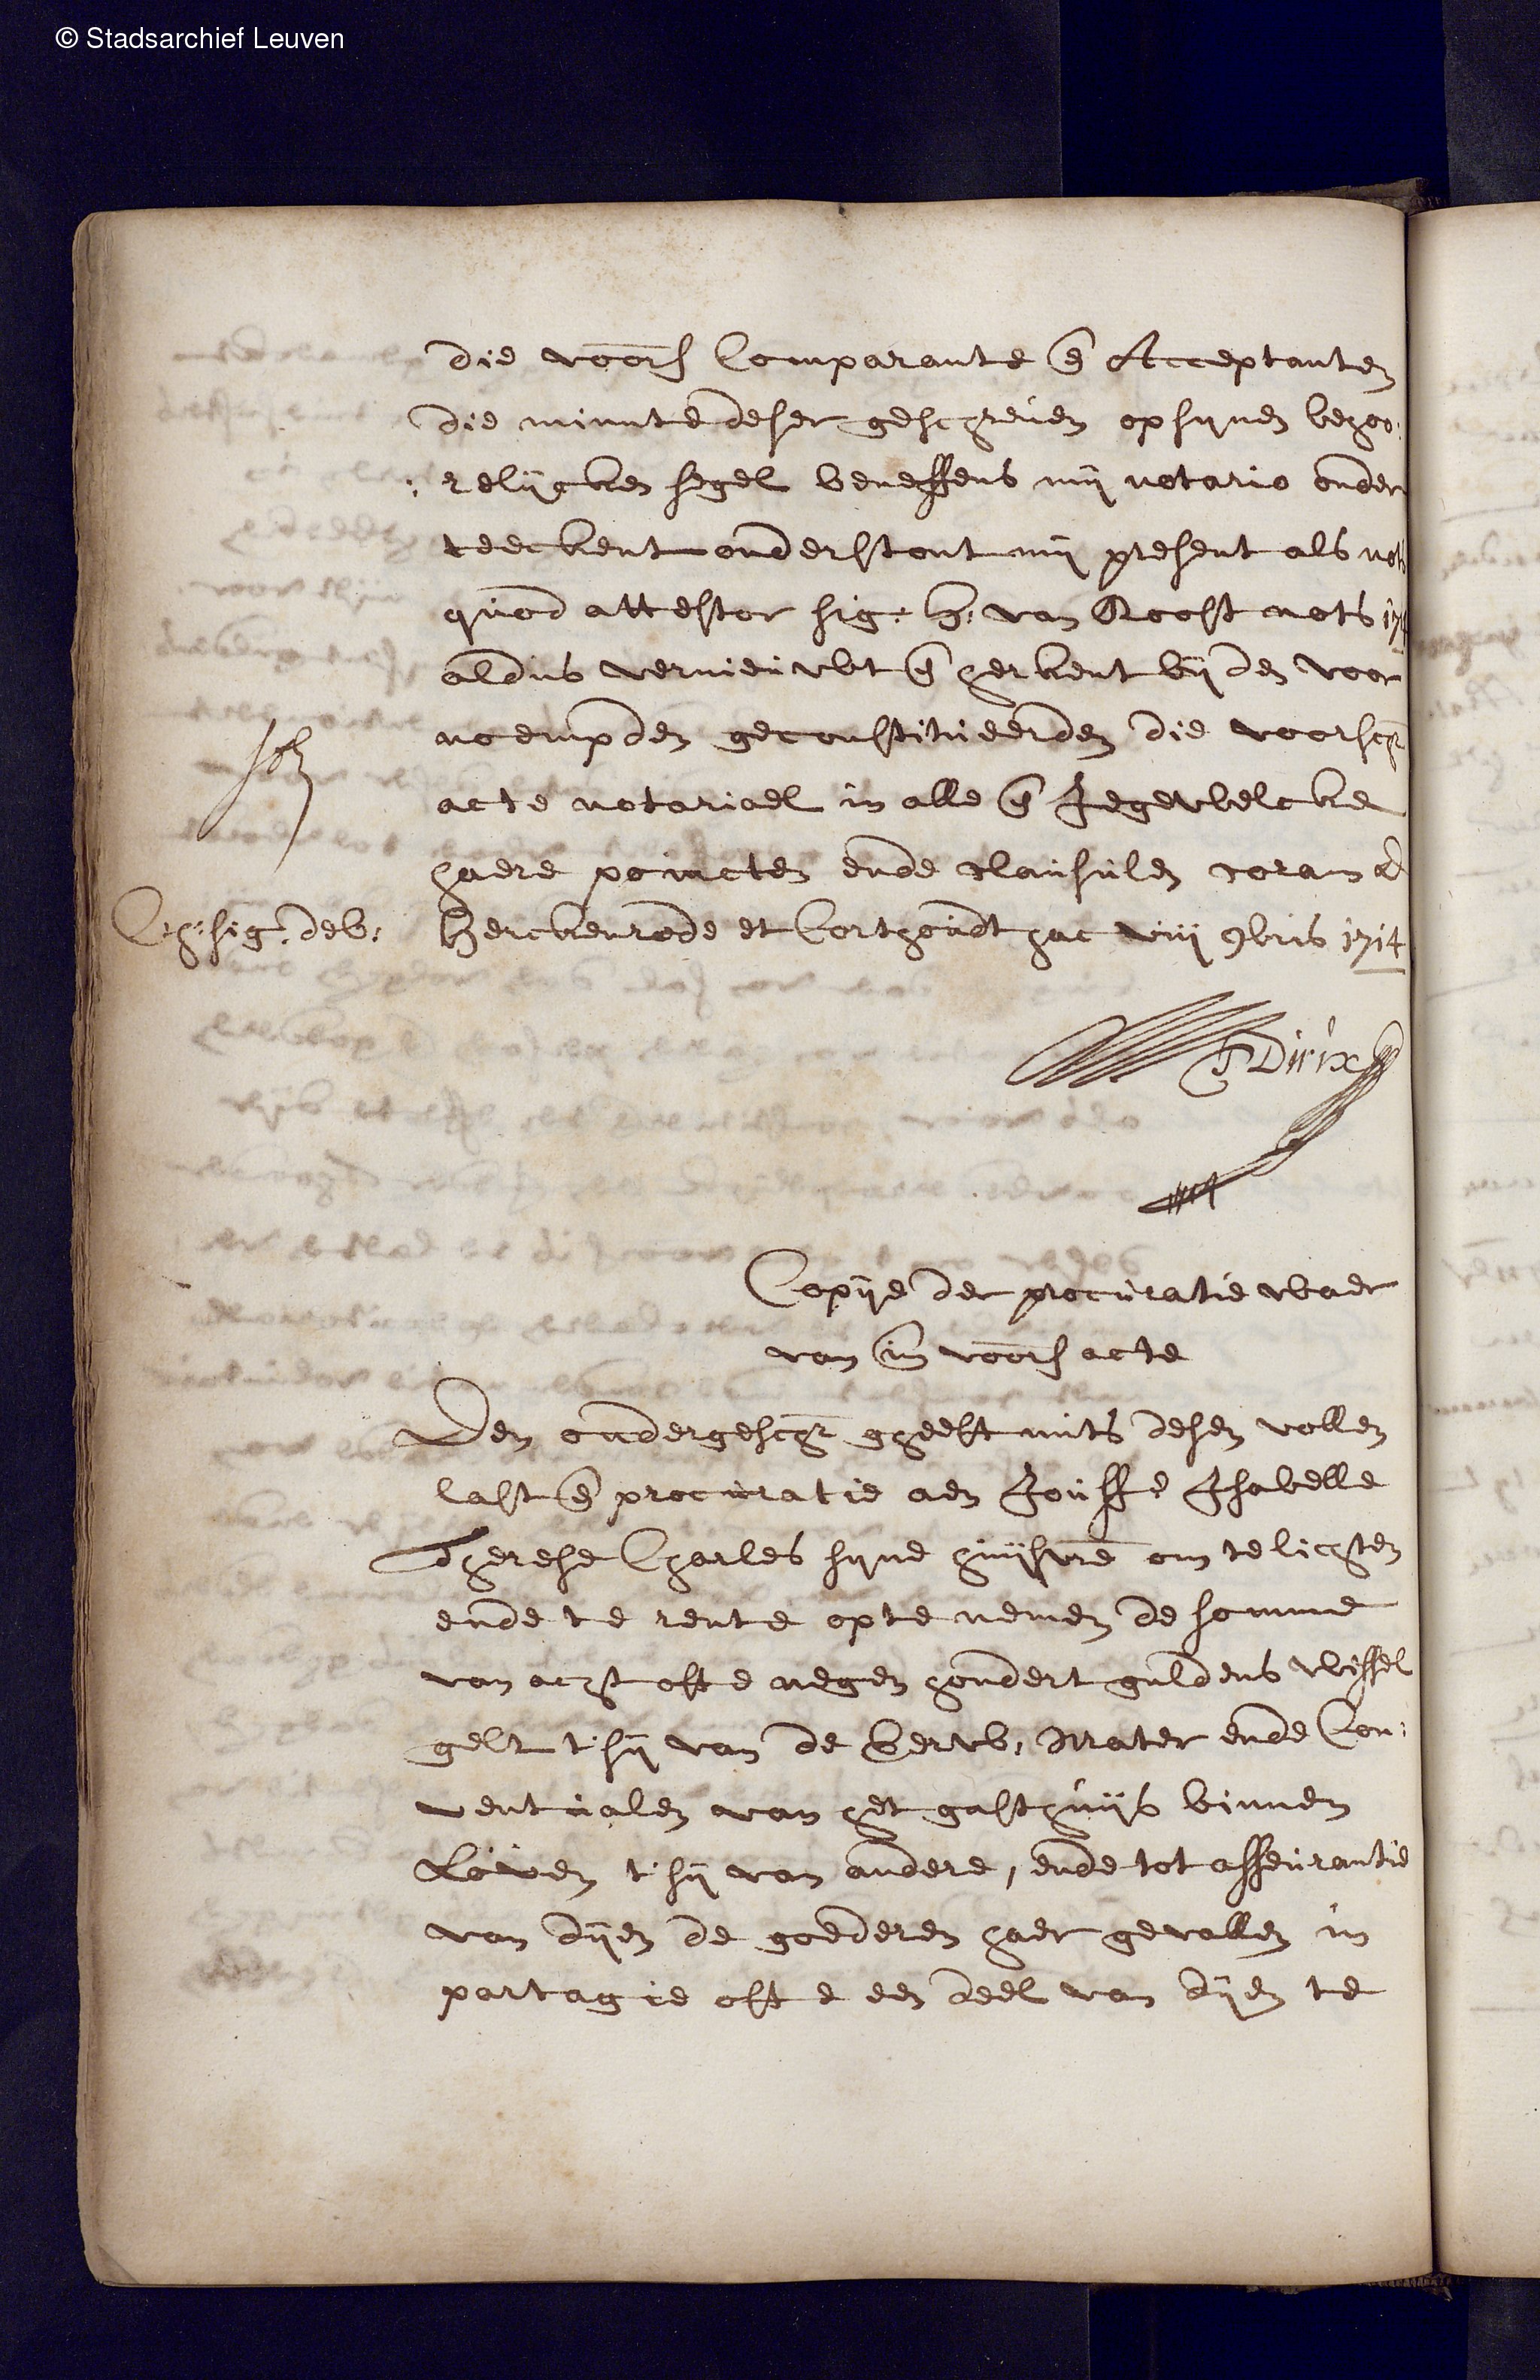 © Stadsarchief Leuven
die voors Comparante en Acceptanten
die minute deser geschreven op synen behoo:
:relijcken segel beneffens mij notario onder
teeckent onderstont mij present als nots
quod attestor sig: H: van Roost nots 171
aldus vernieuwt en herkent bij den voor
noempden geconstitueerden die voorschr
acte notariael in alle en Jegewelcke
haere poincten ende clausulen coram d
C:h: sig. deb: Herckenrode et Corthoudt hac viij 9bris 1714
J Dirix
Copije der procuratie waer
van in voors acte
Den ondergeschr gheeft mits desen vollen
last en procuratie aen Jouffe Isabelle
Therese Charles syne huijsvre om te lichten
ende te rente op te nemen de somme
van acht ofte negen hondert guldens wissel
gelt t'sij van de Eerw: Mater ende Con:
ventualen van het gasthuijs binnen
Loven t'sij van andere, ende tot asseurantie
van dijen de goederen haer gevallen in
partagie ofte een deel van dijen te